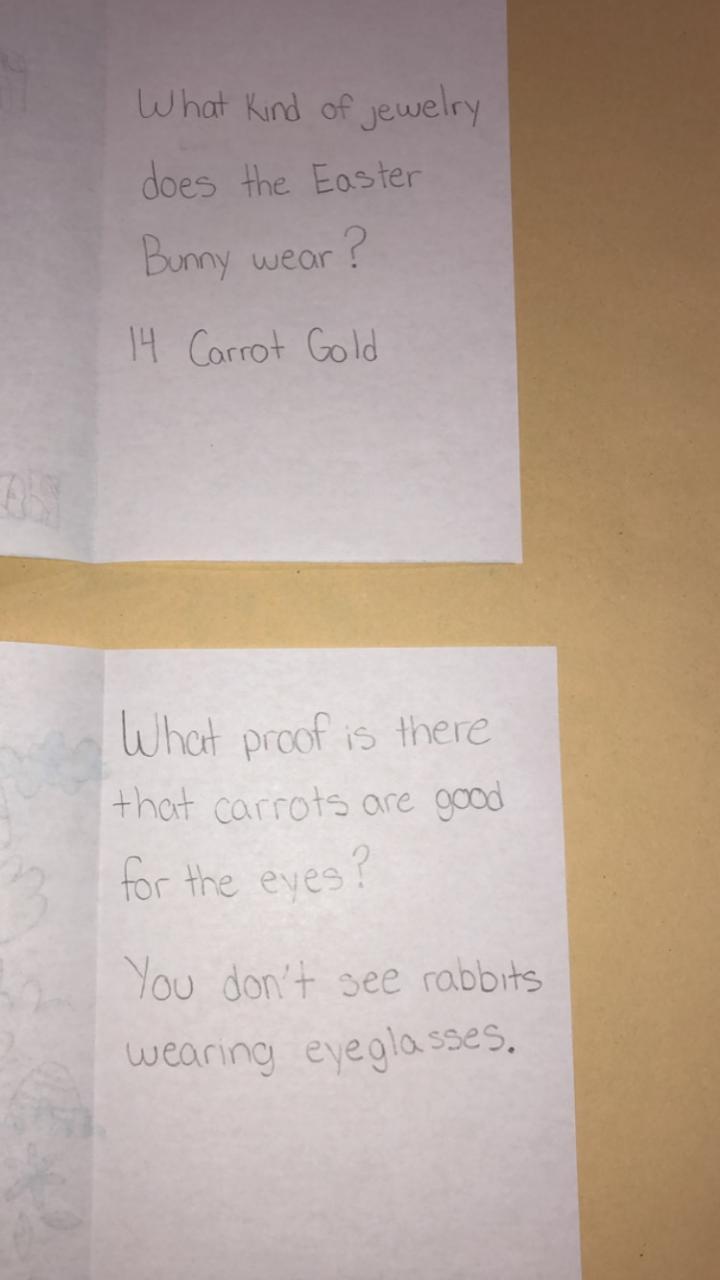 What Kind of jewelry
does the Easter
Bunny wear?
14 Carrot Gold
What proof is there
that carrots are good
for the eyes?
You don't see rabbits
wearing eyeglasses.